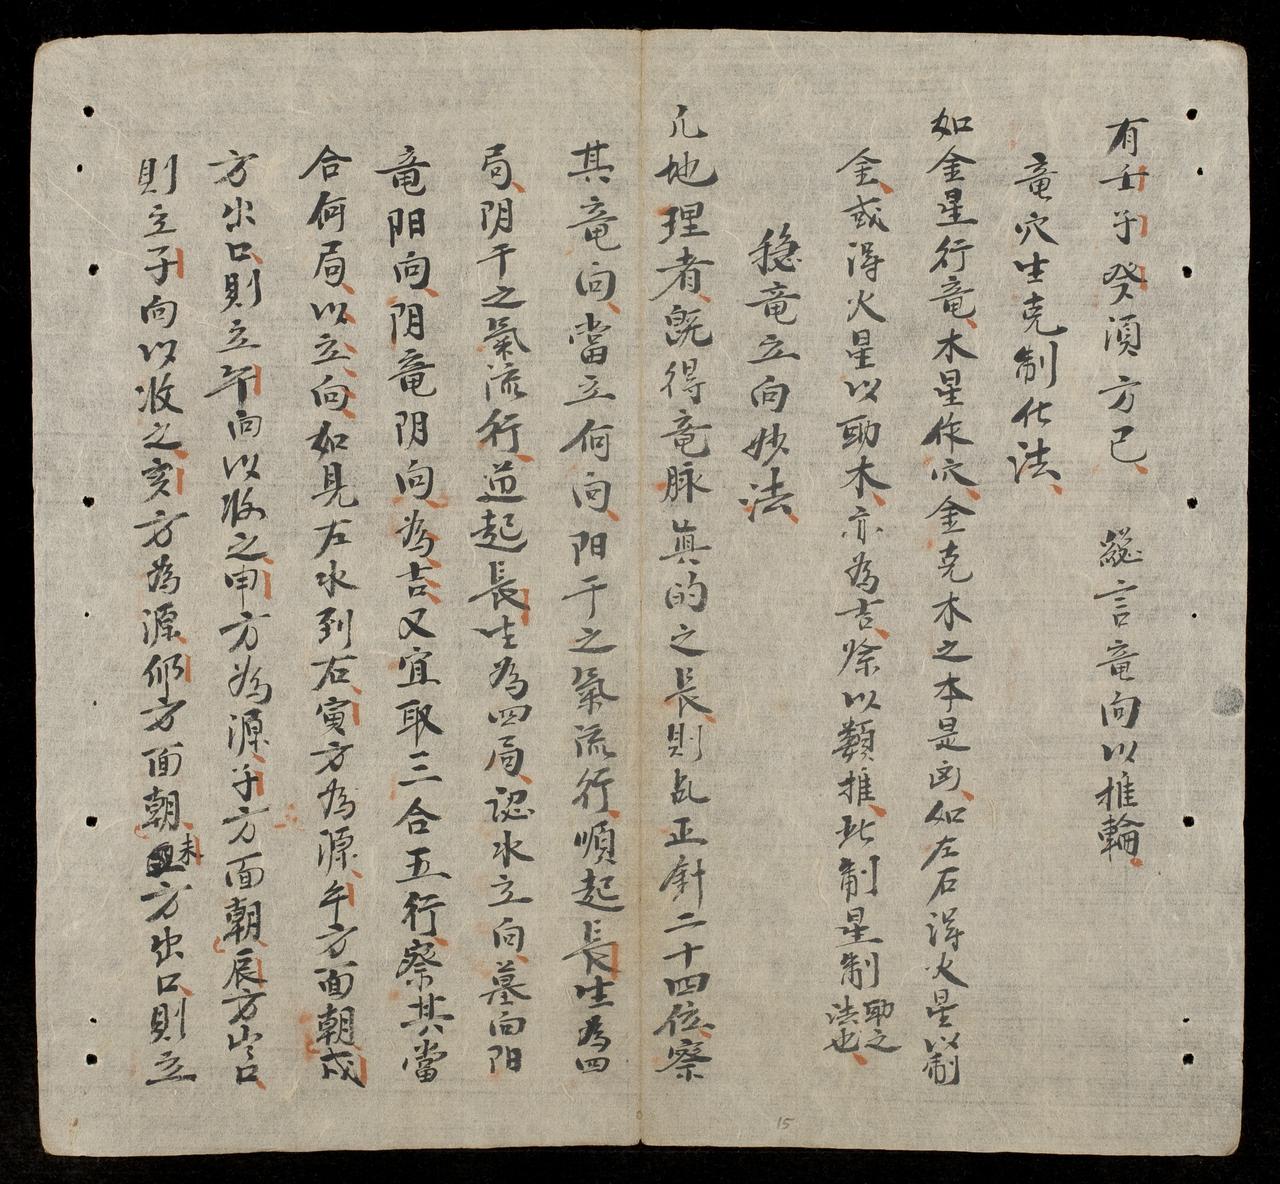 有壬子癸須方已 䜿言竜向以推輪
竜穴生克制化法
如金星行竜木星作穴金克木之本是凶如左右得火星以制
金或得火星以助木亦為吉除以類推此制星制助之法也
稳竜立向妙法
凢地理者既得竜脉真的之長則乱正針二十四位察
其竜向當立何向阳干之氣流行順起長生為四
局阴干之氣流行逆起長生為四局認水立向墓向阳
竜阳向阴竜阴向為吉又宜取三合五行察其當
合何局以立向如見左水到右寅方為源午方面朝戍
方出口則立午向以收之申方為源子方面朝辰方出口
則立子向以收之亥方為源卯方面朝未方出口則立
15